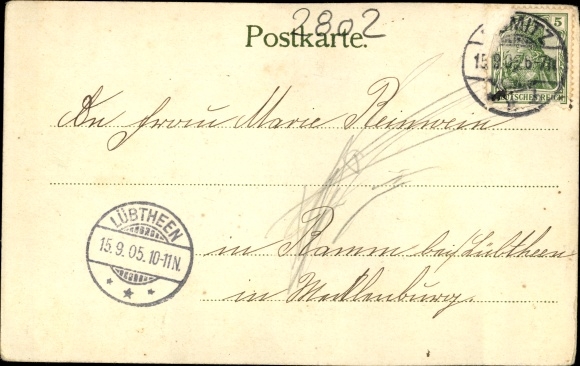 2802
Postkarte.
5
MITZ
15.9.05. 6-7N.
DEUTSCHES REICH
An Frau Marie Reinwein
LÜBTHEEN
15.9.05.10-11N.
in Ramm bei Lübtheen
in Mecklenburg.